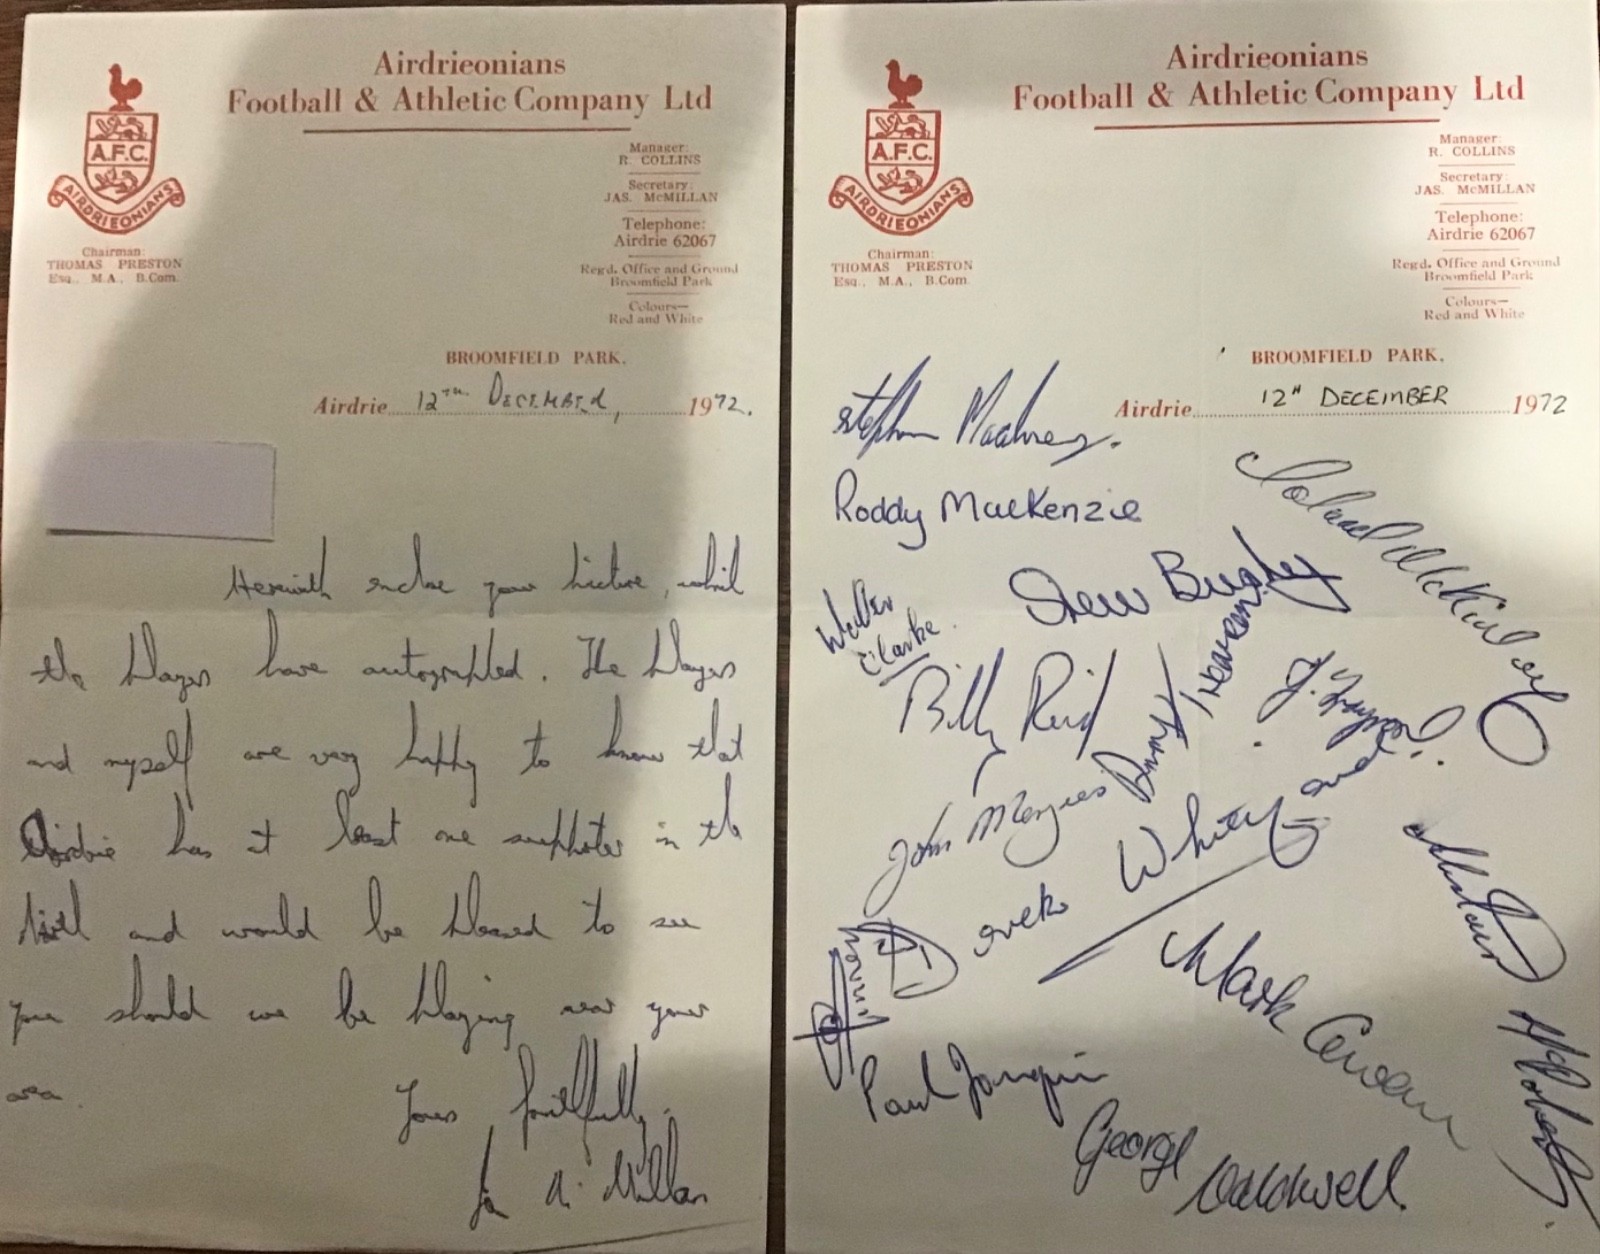 Airdrieonians
Football & Athletic Company Ltd
A.F.C.
AIRDRIEONIANS
Chairman:
THOMAS PRESTON
Esq., M.A., B.Com.
Manager:
R. COLLINS
Secretary:
JAS. McMILLAN
Telephone:
Airdrie 62067
Regd. Office and Ground
Broomfield Park
Colours—
Red and White
BROOMFIELD PARK.
Airdrie 12TH DECEMBER, 1972.
Herewith enclose your picture, which
the players have autographed. The players
and myself are very happy to know that
Airdrie has at least one supporter in the
and would be pleased to see
you should we be playing near your
area.
Yours faithfully,
McMillan
Airdrieonians
Football & Athletic Company Ltd
A.F.C.
AIRDRIEONIANS
Chairman:
THOMAS PRESTON
Esq., M.A., B.Com.
Manager:
R. COLLINS
Secretary:
JAS. McMILLAN
Telephone:
Airdrie 62067
Regd. Office and Ground
Broomfield Park
Colours—
Red and White
BROOMFIELD PARK.
Airdrie 12" DECEMBER 1972
Stephen
Roddy MacKenzie
Drew
Walter
Clarke
Billy Reid
John Menzies
Derek Whiteford
Mark Cowan
Paul Jonquin
George Caldwell